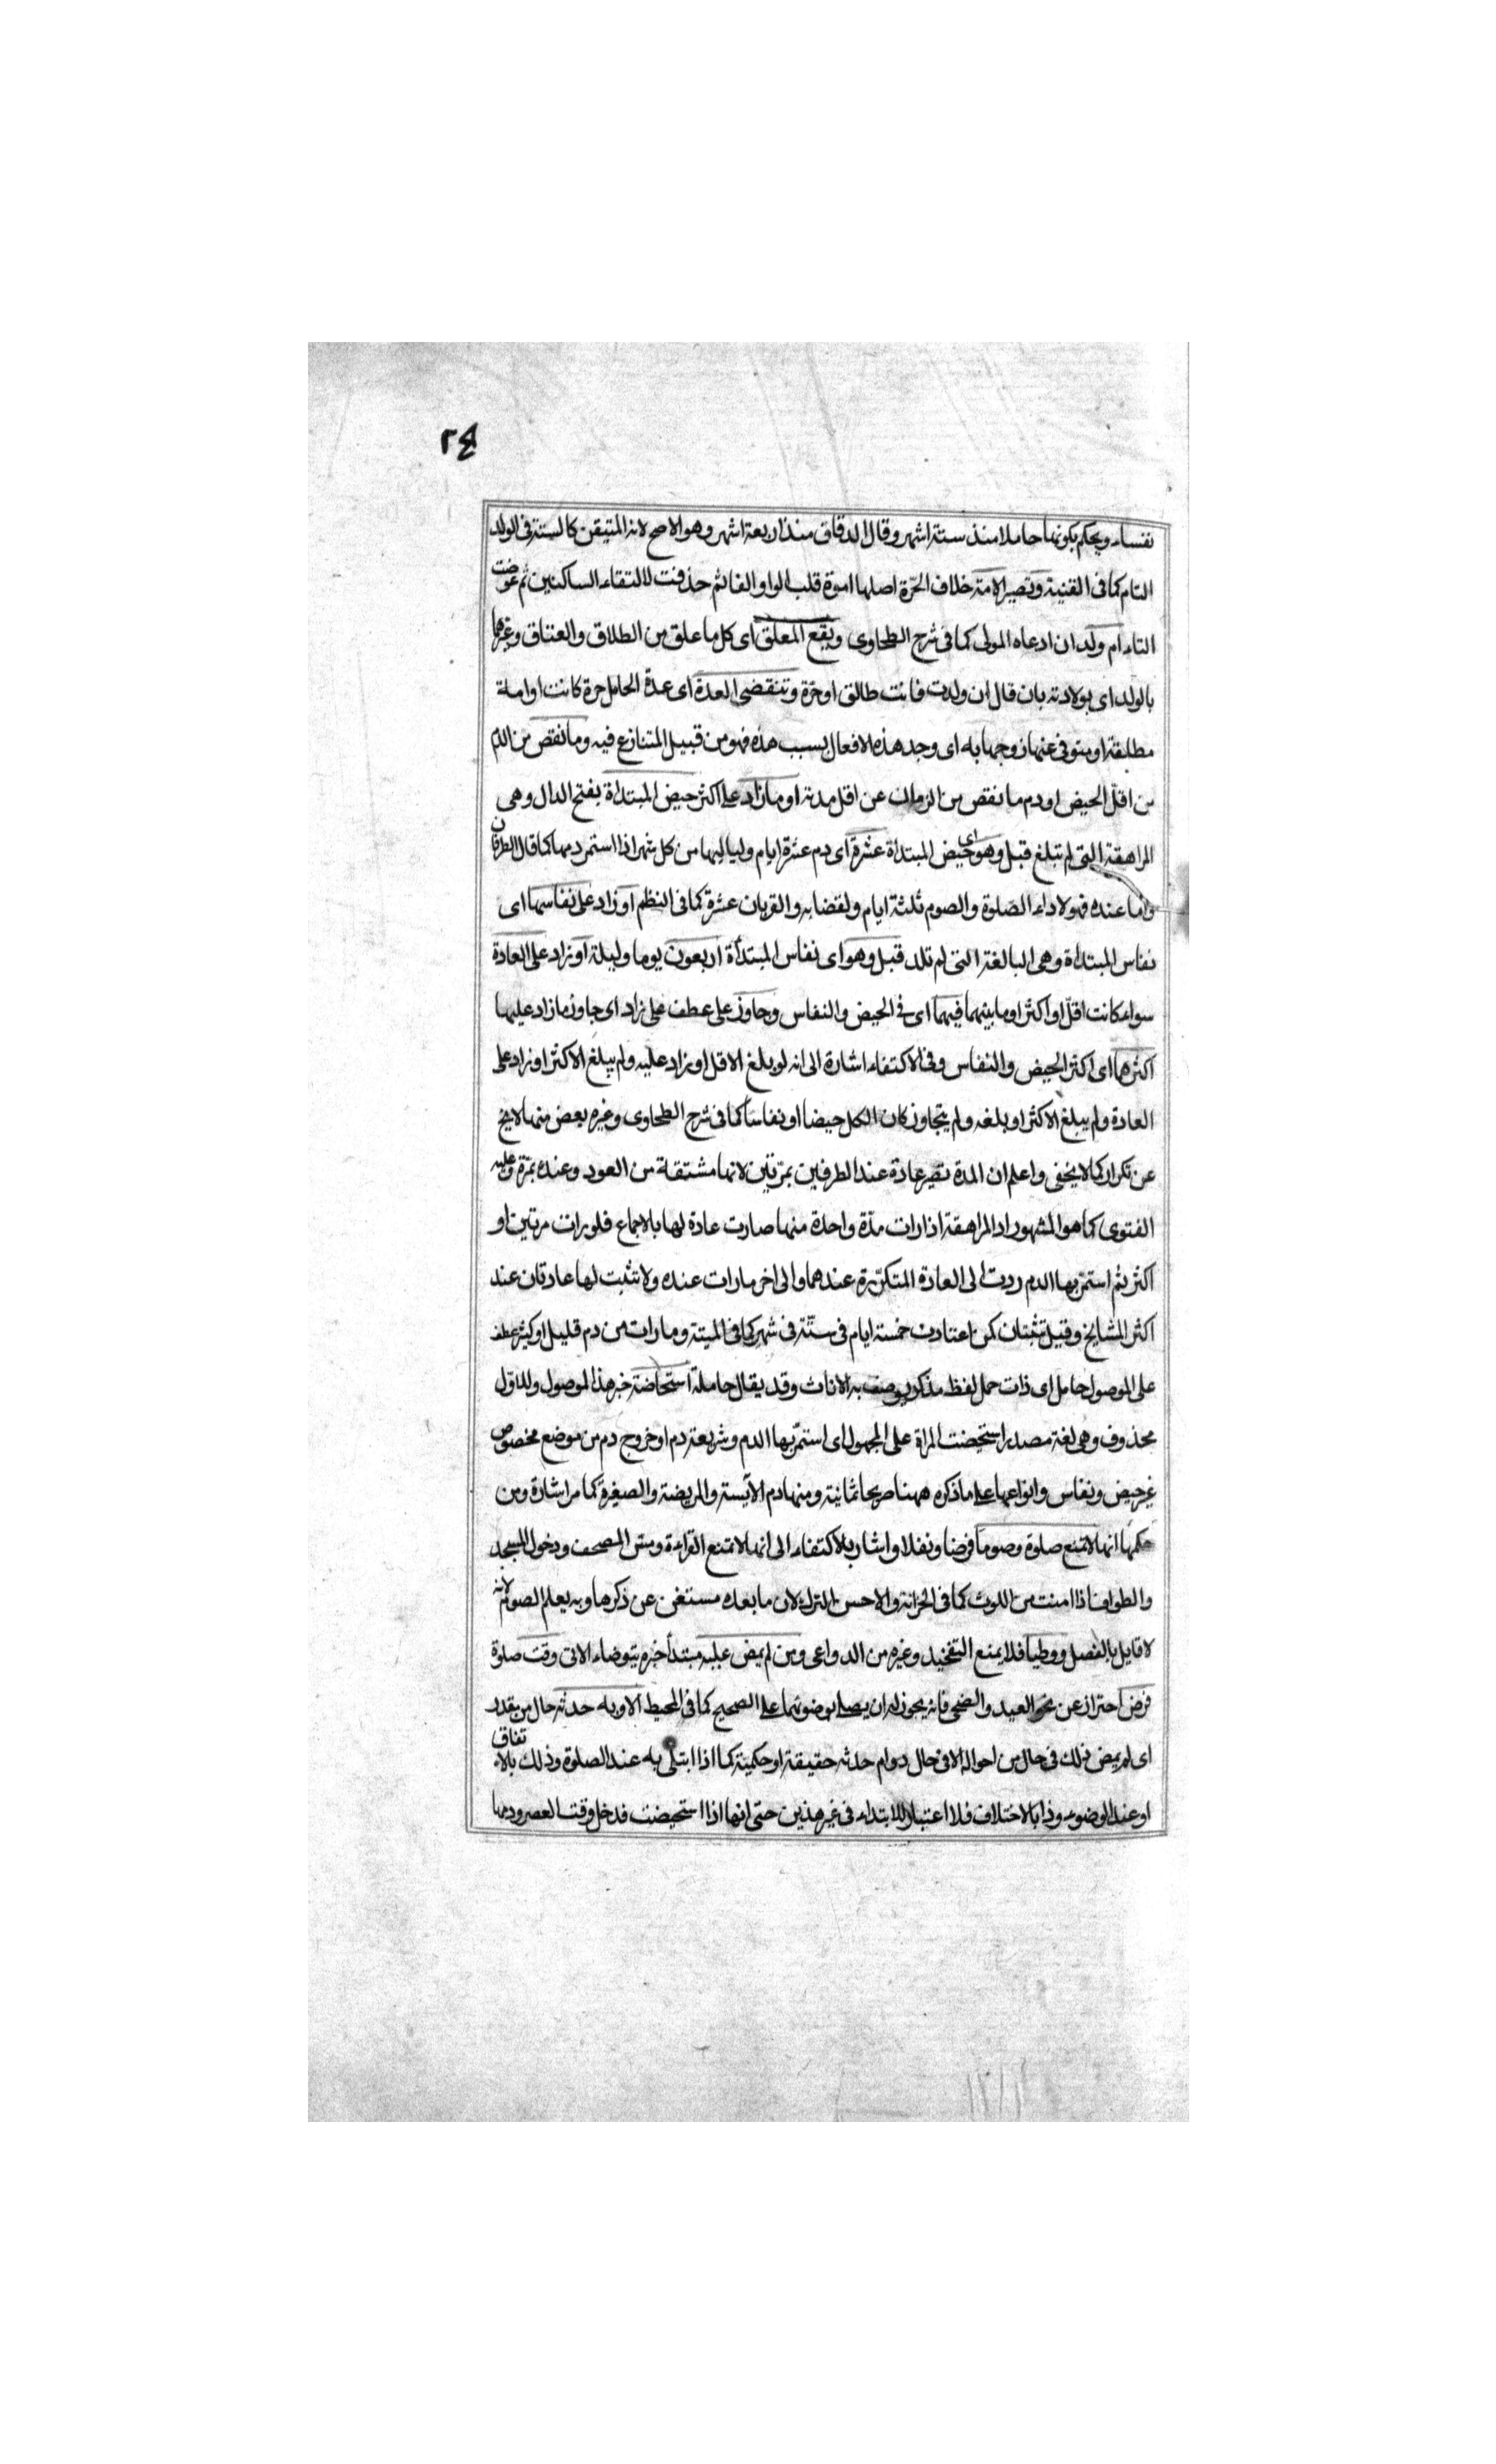 ٢٤
نفساء ويحكم بكونها حاملا منذ ستة اشهر وقال الدقاق منذ اربعة اشهر وهو الاصح لانه المتيقن كالستة في الولد
التام كما في القنية وتصير الامة خلاف الحرّة اصلها اموة قلب الواو الفا ثم حذفت لالتقاء الساكنين ثم عوضت
التاء ام ولد ان ادعاه المولى كما في شرح الطحاوى ويقع المعلق اى كل ما علق من الطلاق والعتاق وغيرها
بالولد اى بولادته بان قال ان ولدت فانت طالق او حرّة وتنقضى العدة اى عدة الحامل حرة كانت او امة
مطلقة او متوفى عنها زوجها به اى وجد هذه الافعال بسبب هذه فهو من قبيل المتنازع فيه وما نقص من الدم
من اقلّ الحيض او دم ما نقص من الزمان عن اقل مدته او ما زاد على اكثر حيض المبتداة بفتح الدال وهى
المراهقة التى لم تبلغ قبل وهو اى حيض المبتداة عشرة اى دم عشرة ايام ولياليها من كل شهر اذا استمر دمها كما قال الطرفان
واما عنده فهو لاداء الصلوة والصوم ثلثة ايام ولقضايه والقربان عشرة كما في النظم او زاد على نفاسها اى
نفاس المبتداة وهى البالغة التى لم تلد قبل وهو اى نفاس المبتدأة اربعون يوما وليلة او زاد على العادة
سواء كانت اقلّ او اكثر او ما بينهما فيهما اى في الحيض والنفاس وجاوز على عطف على زاد اى جاوز ما زاد عليها
اكثرهما اى اكثر الحيض والنفاس وفي الاكتفاء اشارة الى انه لو بلغ الاقل او زاد عليه ولم يبلغ الاكثر او زاد على
العادة ولم يبلغ الاكثر او بلغه ولم يتجاوز كان الكل حيضا او نفاسا كما في شرح الطحاوى وغيره بعض منها لا يخ
عن تكرار كما لا يخفى واعلم ان المدة تصير عادة عند الطرفين بمرّتين لانها مشتقة من العود وعنده بمرّة وعليه
الفتوى كما هو المشهور اد المراهقة اذا رات مدّة واحدة منها صارت عادة لها بالاجماع فلو رات مرتين او
اكثر ثم استمرّ بها الدم ردت الى العادة المتكرّرة عندهما والى اخر ما رات عنده ولا تثبت لها عادتان عند
اكثر المشايخ وقيل تثبتان كمن اعتادت خمسة ايام في ستّة في شهر كما في المبتة وما رات من دم قليل او كثير عطف
على الموصول حامل اى ذات حمل لفظ مذكر يوصف به الاناث وقد يقال حاملة استحاضة خبر هذا الموصول وللاوّل
محذوف وهى لغة مصدر استحيضت المراة على المجهول اى استمرّ بها الدم وشريعة دم او خروج دم من موضع مخصوص
غير حيض ونفاس وانواعها على ما ذكره ههنا صريحا ثمانية ومنها دم الآيسة والمريضة والصغيرة كما مر اشارة ومن
حكمها انها لا تمنع صلوة وصوما فرضا ونفلا واشار بالاكتفاء الى انها لا تمنع القراءة ومسّ المصحف ودخول المسجد
والطواف اذا امنت من اللوث كما في الخزانة والاحسن الترك لان ما بعده مستغن عن ذكرها وبه يعلم الصوم لانه
لا قايل بالفصل ووطيا فلا يمنع التفخيذ وغيره من الدواعى ومن لم يمض عليه مبتدأ خبره يتوضاء الاتى وقت صلوة
فرض احتراز عن نحو العيد والضحى فانه يجوز له ان يصلى بوضوئهما على الصحيح كما في المحيط الا وبه حدثه حال من مقدر
اى لم يمض ذلك في حال من احواله الا في حال دوام حدثه حقيقة او حكمية كما اذا ابتلى به عند الصلوة وذلك بالاتفاق
او عند الوضوء وذا بالاختلاف فلا اعتبار للابتداء في غير هذين حتى انها اذا استحيضت فدخل وقت العصر ودمها